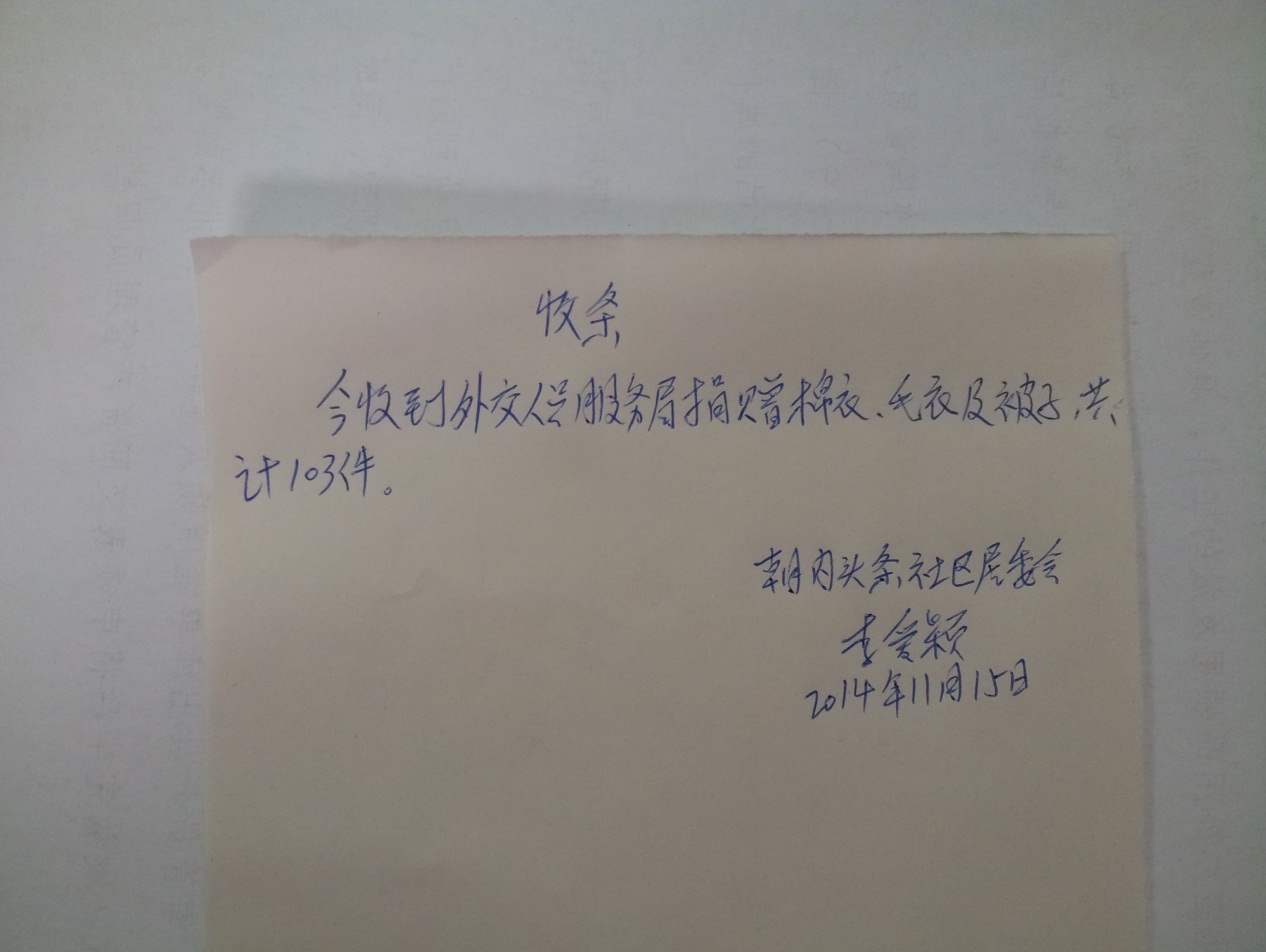 收条
今收到外交人员服务局捐赠棉衣、毛衣及被子,共
计103件。
朝内头条社区居委会
李爱颖
2014年11月15日